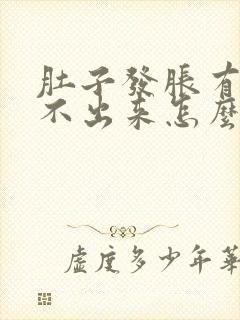 肚子發脹有
不出来怎麼
虛度多少年華